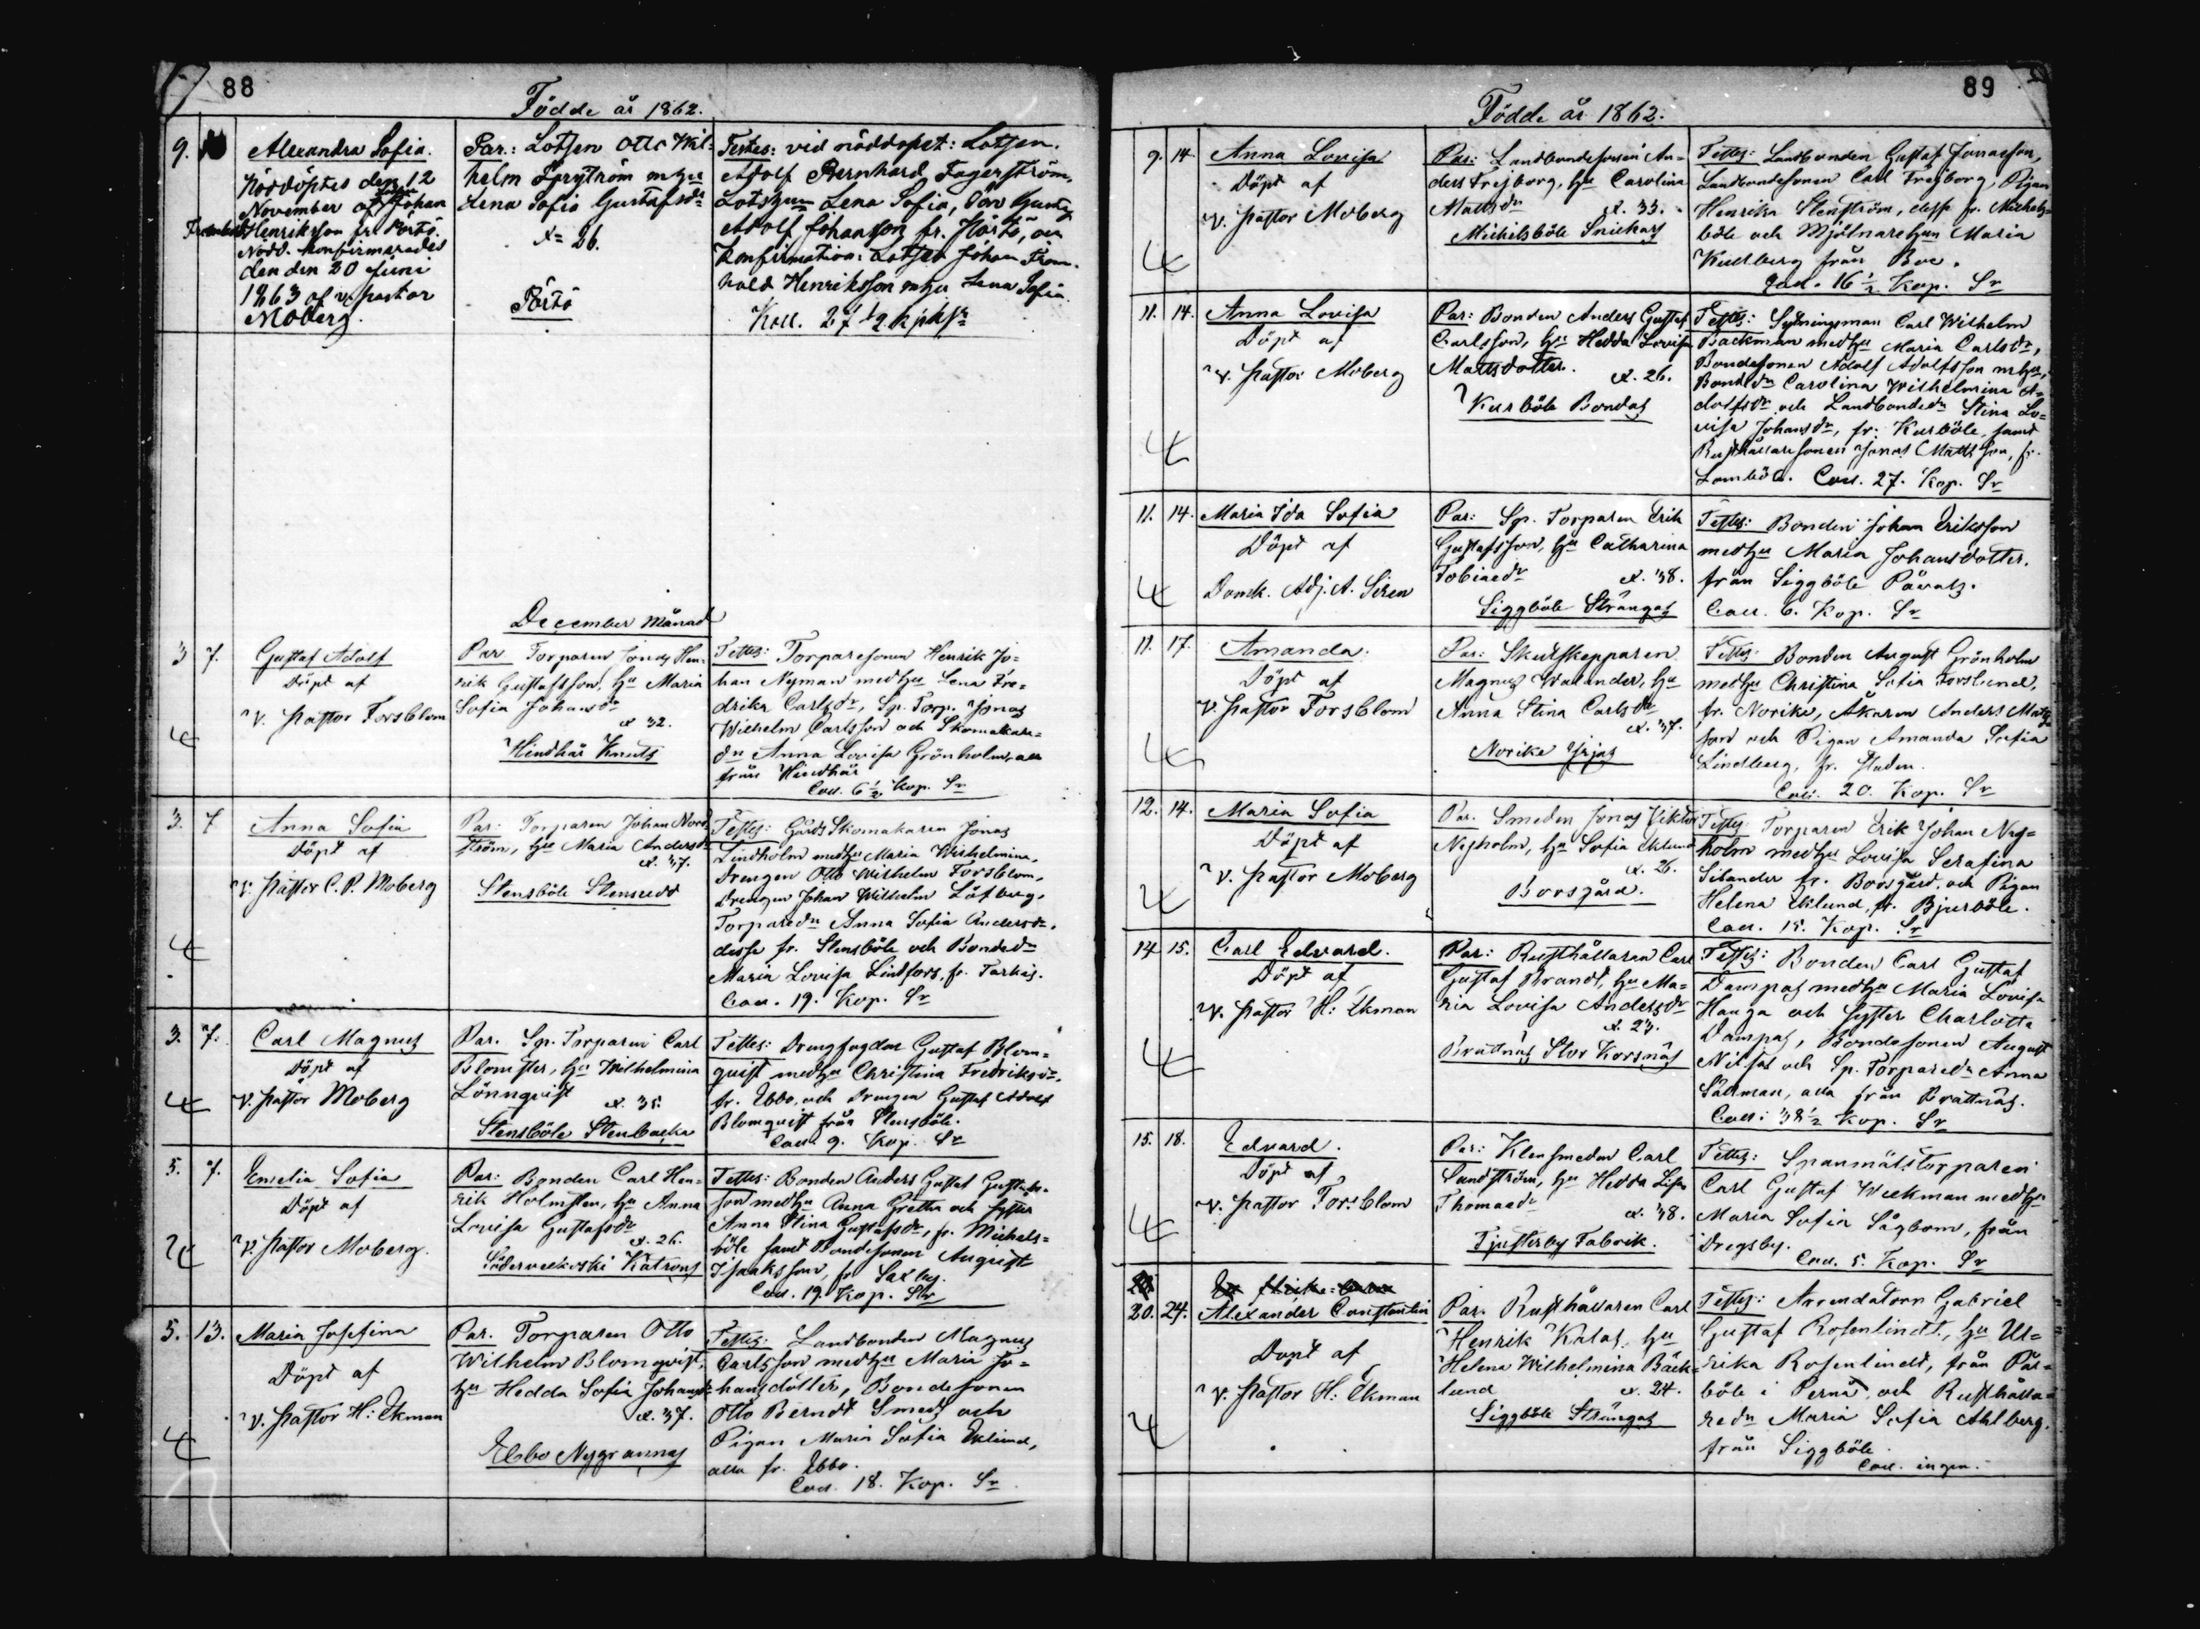 88
Födde år 1862.
9.
Alexandra Sofia.
Nöddöptes den 12
November af Johan
Henriksson fr. Pörtö.
Nödd. konfirmerades
den den 20 Juni
1863 af v. pastor
Moberg.
Par: Lotsen Otto Wil=
helm Öhrström m hu
Lena Sofia Gustafsdr
x= 26.
Pörtö
Testes: vid nöddopet: Lotsen
Adolf Bernhard Fagerström,
Lotshun Lena Sofia,
Adolf Johansson fr. Pörtö,
Konfirmation: Lotsen Johan From=
hold Henriksson m hu Lena Sofia.
Koll. 27 1/2 kp Sr
December Månad
3 7.
Gustaf Adolf
Döpt af
v. Pastor Forsblom
Par Torparen Jonas Hen=
rik Gustafsson, hu Maria
Sofia Johansdr
x 32.
Hindhår Knuts
Testes: Torparesonen Henrik Jo=
han Nyman med hu Lena Fre=
drika Carlsdr, Sp. Torp. Jonas
Wilhelm Carlsson och Skomakare=
dr Anna Lovisa Grönholm, alla
från Hindhår
Coll. 6 1/2 Kop. Sr
3. 7
Anna Sofia
Döpt af
v. Pastor C. P. Moberg
Par: Torparen Johan Nord=
ström, hu Maria Andersdr
x. 37.
Stensböle Stensredd
Testes: Gårds Skomakaren Jonas
Lindholm med hu Maria Wilhelmina,
Drengen Otto Wilhelm Forsblom,
Drengen Johan Wilhelm Löfberg,
Torparedr Anna Sofia Andersdr,
dessa fr. Stensböle och Bondedr
Maria Lovisa Lindfors, fr. Tarkis.
Coll. 19. Kop. Sr
3. 7.
Carl Magnus
Döpt af
v. Pastor Moberg
Par. Sp. Torparen Carl
Blomster, hu Wilhelmina
Lönnqvist
x. 35.
Stensböle Stenbacka
Testes: Drengfogden Gustaf Blom=
quist med hu Christina Fredriksdr,
fr. Ebbo, och Drengen Gustaf Adolf
Blomquist från Stensböle.
Coll. 9. Kop. Sr
5. 7.
Emelia Sofia
Döpt af
v. Pastor Moberg.
Par: Bonden Carl Hen=
rik Holmsten, hu Anna
Lovisa Gustafsdr
x. 26.
Söderveckoski Katrons
Testes: Bonden Anders Gustaf Gustafs=
son med hu Anna Gretha och syster
Anna Stina Gustafsdr, fr. Michels=
böle samt Bondesonen August
Isaksson, fr Saxby.
Coll. 19. Kop. Sr
5. 13.
Maria Josefina
Döpt af
v. Pastor H: Ekman
Par. Torparen Otto
Wilhelm Blomqvist,
hu Hedda Sofia Johansdr
x. 37.
Ebbo Nygrannas
Testes: Landbonden Magnus
Carlsson med hu Maria Jo=
hansdotter, Bondesonen
Otto Berndt Smeds och
Pigan Maria Sofia Eklund,
alla fr. Ebbo.
Coll. 18. Kop. Sr
89
Födde år 1862.
9. 14.
Anna Lovisa
Döpt af
v. Pastor Moberg
Par: Landbondesonen An=
ders Frejborg, hu Carolina
Mattsdr x. 33.
Michelsböle Snickars
Testes: Landbonden Gustaf Jonasson,
Landbondesonen Carl Frejborg, Pigan
Henrika Stenström, dessa fr. Michels=
böle och Mjölnarehun Maria
Kullberg från Boe.
Coll. 16 1/2 Kop. Sr
11. 14.
Anna Lovisa
Döpt af
v. Pastor Moberg
Par: Bonden Anders Gustaf
Carlsson, hu Hedda Lovisa
Mattsdotter. x. 26.
Kurböle Bondas
Testes: Sytningsman Carl Wilhelm
Backman med hu Maria Carlsdr,
Bondesonen Adolf Adolfsson m hu,
Bondedr Carolina Wilhelmina A=
dolfsdr och Landbondedr Stina Lo=
visa Johansdr, fr. Kurböle, samt
Rusthållaresonen Jonas Mattsson, fr.
Lomböle. Coll. 27. Kop. Sr
11. 14.
Maria Ida Sofia
Döpt af
Domk. Adj. A. Siren
Par: Sp. Torparen Erik
Gustafsson, hu Catharina
Tobiaedr x. 38.
Siggböle Strångas
Testes: Bonden Johan Eriksson
med hu Maria Johansdotter,
från Siggböle Påvals.
Coll. 6. Kop. Sr
11. 17.
Amanda.
Döpt af
v. Pastor Forsblom
Par: Skutskepparen
Magnus Walander, hu
Anna Stina Carlsdr
x. 37.
Norike Yrjas
Testes: Bonden August Grönholm
med hu Christina Sofia Forslund,
fr. Norike, Åkaren Anders Mats
son och Pigan Amanda Sofia
Lindberg, fr. Staden.
Coll. 20. Kop. Sr
12. 14.
Maria Sofia
Döpt af
v. Pastor Moberg
Par. Smeden Jonas Viktor
Nyholm, hu Sofia Eklund
x. 26.
Borsgård.
Testes Torparen Erik Johan Ny=
holm med hu Lovisa Serafina
Silander fr. Borsgård, och Pigan
Helena Eklund, fr. Bjurböle.
Coll. 15. Kop. Sr
14 15.
Carl Edvard.
Döpt af
v. Pastor H: Ekman
Par: Rusthållaren Carl
Gustaf Brandt, hu Ma=
ria Lovisa Andersdr
x. 23.
Kråttnäs Stor Korsnäs
Testes: Bonden Carl Gustaf
Dampas med hu Maria Lovisa
Hanga och syster Charlotta
Dampas, Bondesonen August
Nissas och Sp. Torparedr Anna
Sallman, alla från Kråttnäs.
Coll: 38 1/2 Kop. Sr
15. 18.
Edvard.
Döpt af
v. Pastor Forsblom
Par: Klensmeden Carl
Sandström, hu Hedda Lisa
Thomaedr x. 38.
Tjusterby Fabrik.
Testes: Spanmålstorparen
Carl Gustaf Weckman med hu
Maria Sofia Sågbom, från
Dregsby.
Coll. 5. Kop. Sr
20. 24.
Alexander Constantin
Döpt af
v. Pastor H: Ekman
Par. Rusthållaren Carl
Henrik Kalas, hu
Helena Wilhelmina Bäck=
lund x. 24.
Siggböle Strångas
Testes: Arrendatorn Gabriel
Gustaf Rosenlindt, hu Ul=
rika Rosenlindt, från Pär=
böle i Pernå, och Rusthålla=
redr Maria Sofia Ahlberg,
från Siggböle.
Coll. ingen.